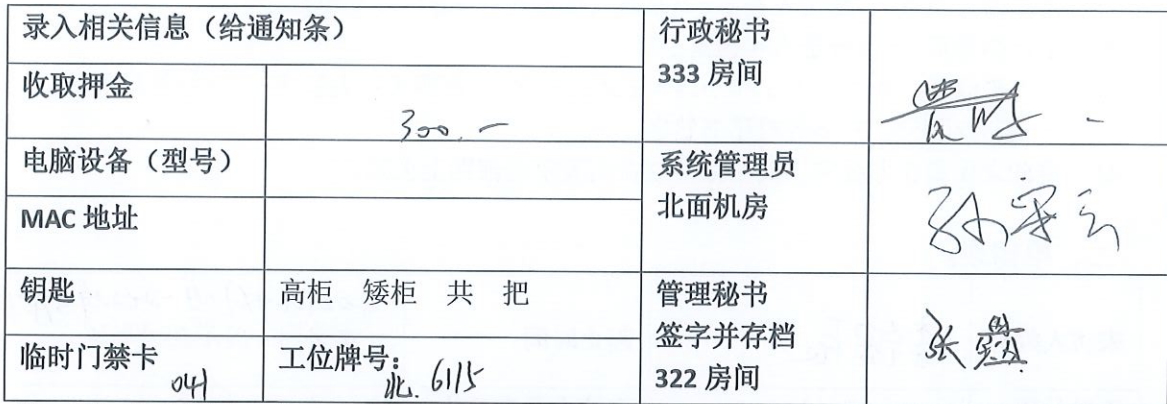 录入相关信息（给通知条）
行政秘书
333 房间
收取押金
300.-
电脑设备（型号）
系统管理员
北面机房
MAC 地址
钥匙
高柜 矮柜 共 把
管理秘书
签字并存档
322 房间
张
临时门禁卡
041
工位牌号：
北. 6115